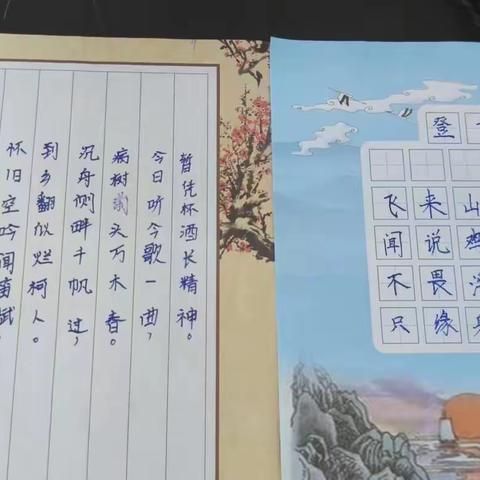 暂凭杯酒长精神。
今日听今歌一曲，
病树头万木春。
沉舟侧畔千帆过，
到乡翻似烂柯人。
怀旧空吟闻笛赋，
登
飞来山
闻说
不畏
只缘